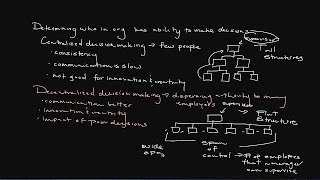 Determining who in org has ability to make decisions
Centralized decision making → few people
• consistency
• communication is slow
• not good for innovation & creativity
Tall
structures
Decentralized decision making → dispersing authority to many
employees
• communication better
• innovation & creativity
• impact of poor decisions
Flat
structure
wide
span
span
of
control → # of employees
that a manager
can supervise